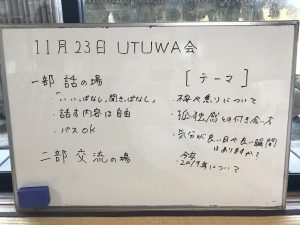 11月23日 UTUWA会
一部 話の場
・いいっぱなし、聞きっぱなし
・話す内容は自由
・パスOK
二部 交流の場
[テーマ]
・怒りについて
・孤独感との付き合い方
・気分が良い日や良い瞬間
はありますか?
今後
2019年について